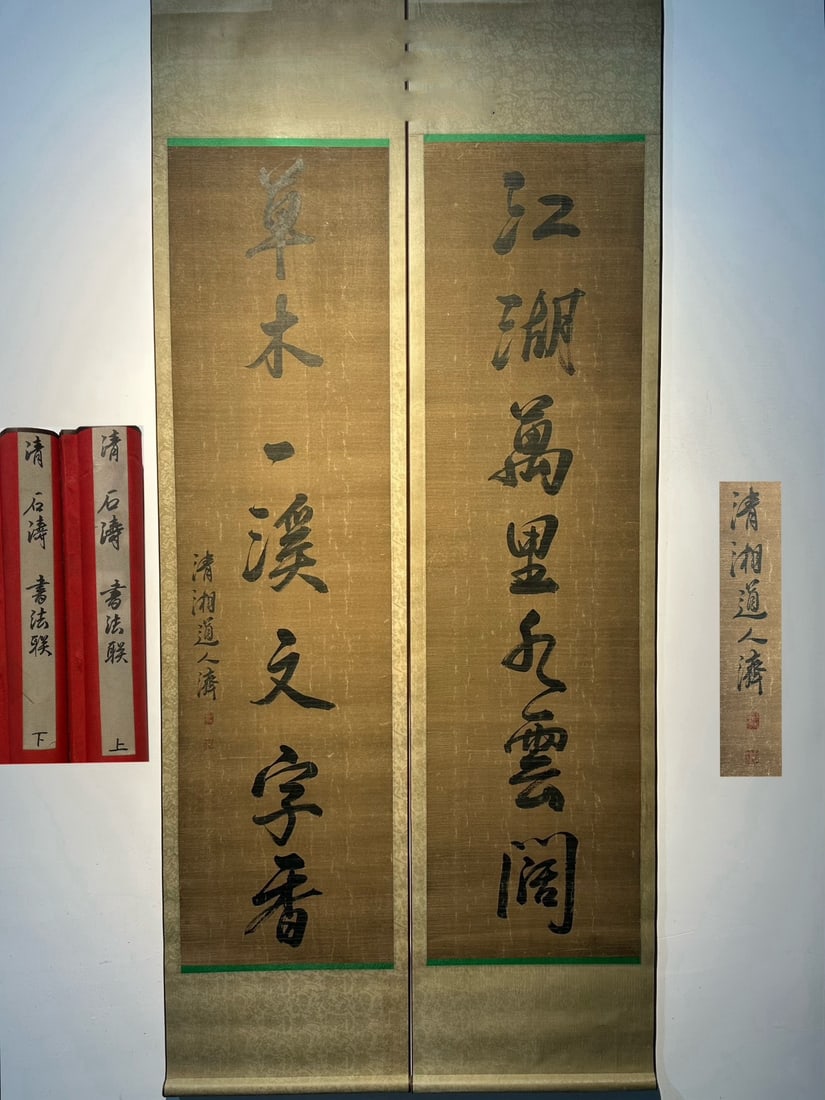 江湖萬里水雲闊
草木一溪文字香
清湘道人濟
清 石濤 書法联 上
清 石濤 書法联 下
清湘道人濟